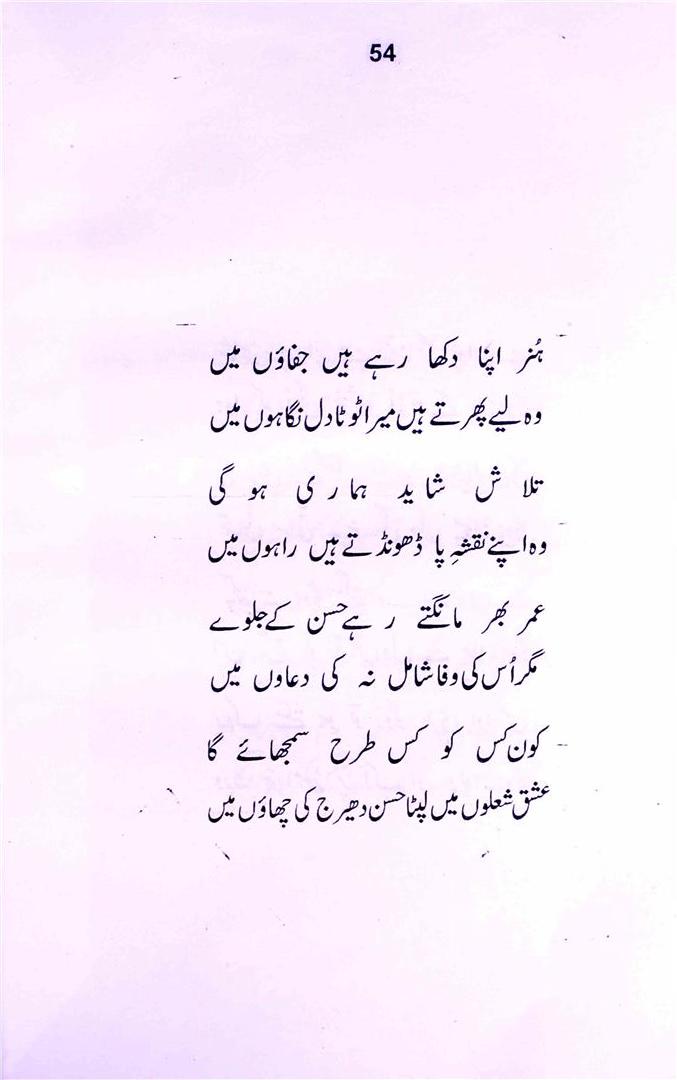 54
ہُنر اپنا دکھا رہے ہیں جفاؤں میں
وہ لیے پھرتے ہیں میرا ٹوٹا دل نگاہوں میں
تلاش شاید ہماری ہو گی
وہ اپنے نقشہِ پا ڈھونڈتے ہیں راہوں میں
عمر بھر مانگتے رہے حسن کے جلوے
مگر اُس کی وفا شامل نہ کی دعاوں میں
کون کس کو کس طرح سمجھائے گا
عشق شعلوں میں لپٹا حسن دھیرج کی چھاؤں میں